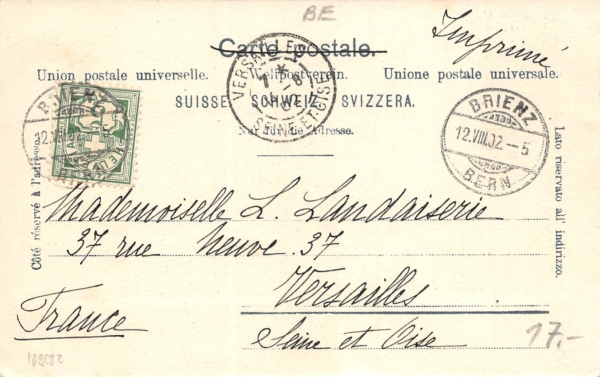 BE
Carte postale.
Imprimé
Union postale universelle. Weltpostverein. Unione postale universale.
SUISSE. SCHWEIZ. SVIZZERA.
Nur für die Adresse.
Côté réservé à l'adresse.
Lato riservato all' indirizzo.
VERSAILLES
SEINE-ET-OISE
BRIENZ
12.VIII.02.-5
BRIENZ
12.VIII.02.-5
BERN
Mademoiselle L. Landaiserie
37 rue Neuve 37
Versailles
Seine et Oise
France
17.-